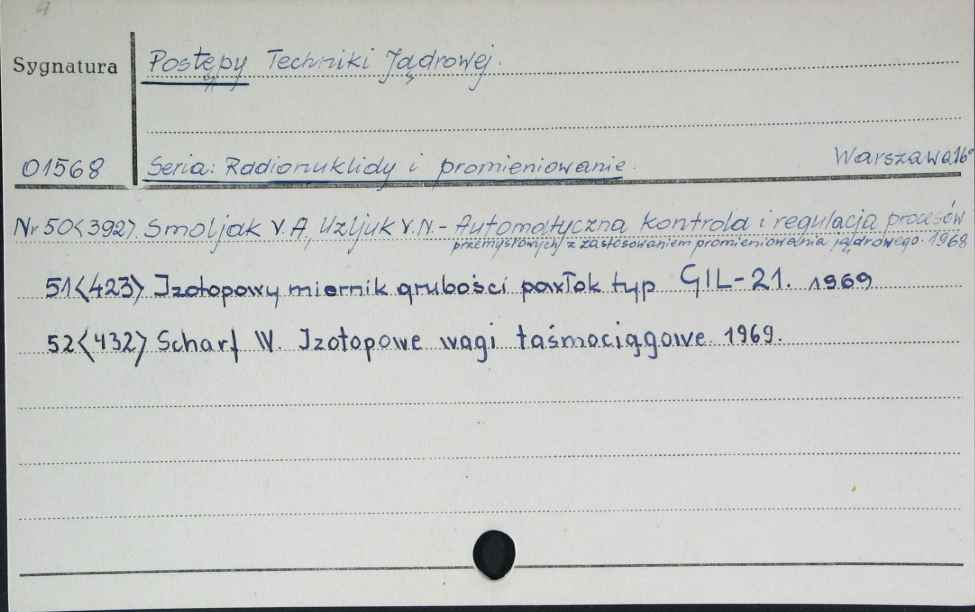 4
Sygnatura Postępy Techniki Jądrowej.
01568 Seria: Radionuklidy i promieniowanie. Warszawa 16°
Nr 50<392>. Smoljak V.A., Uzljuk V.N. - Automatyczna kontrola i regulacja procesów
przemysłowych z zastosowaniem promieniowania jądrowego. 1968
51<423> Izotopowy miernik grubości powłok typ GIL-21. 1969
52<432> Scharf W. Izotopowe wagi taśmociągowe. 1969.